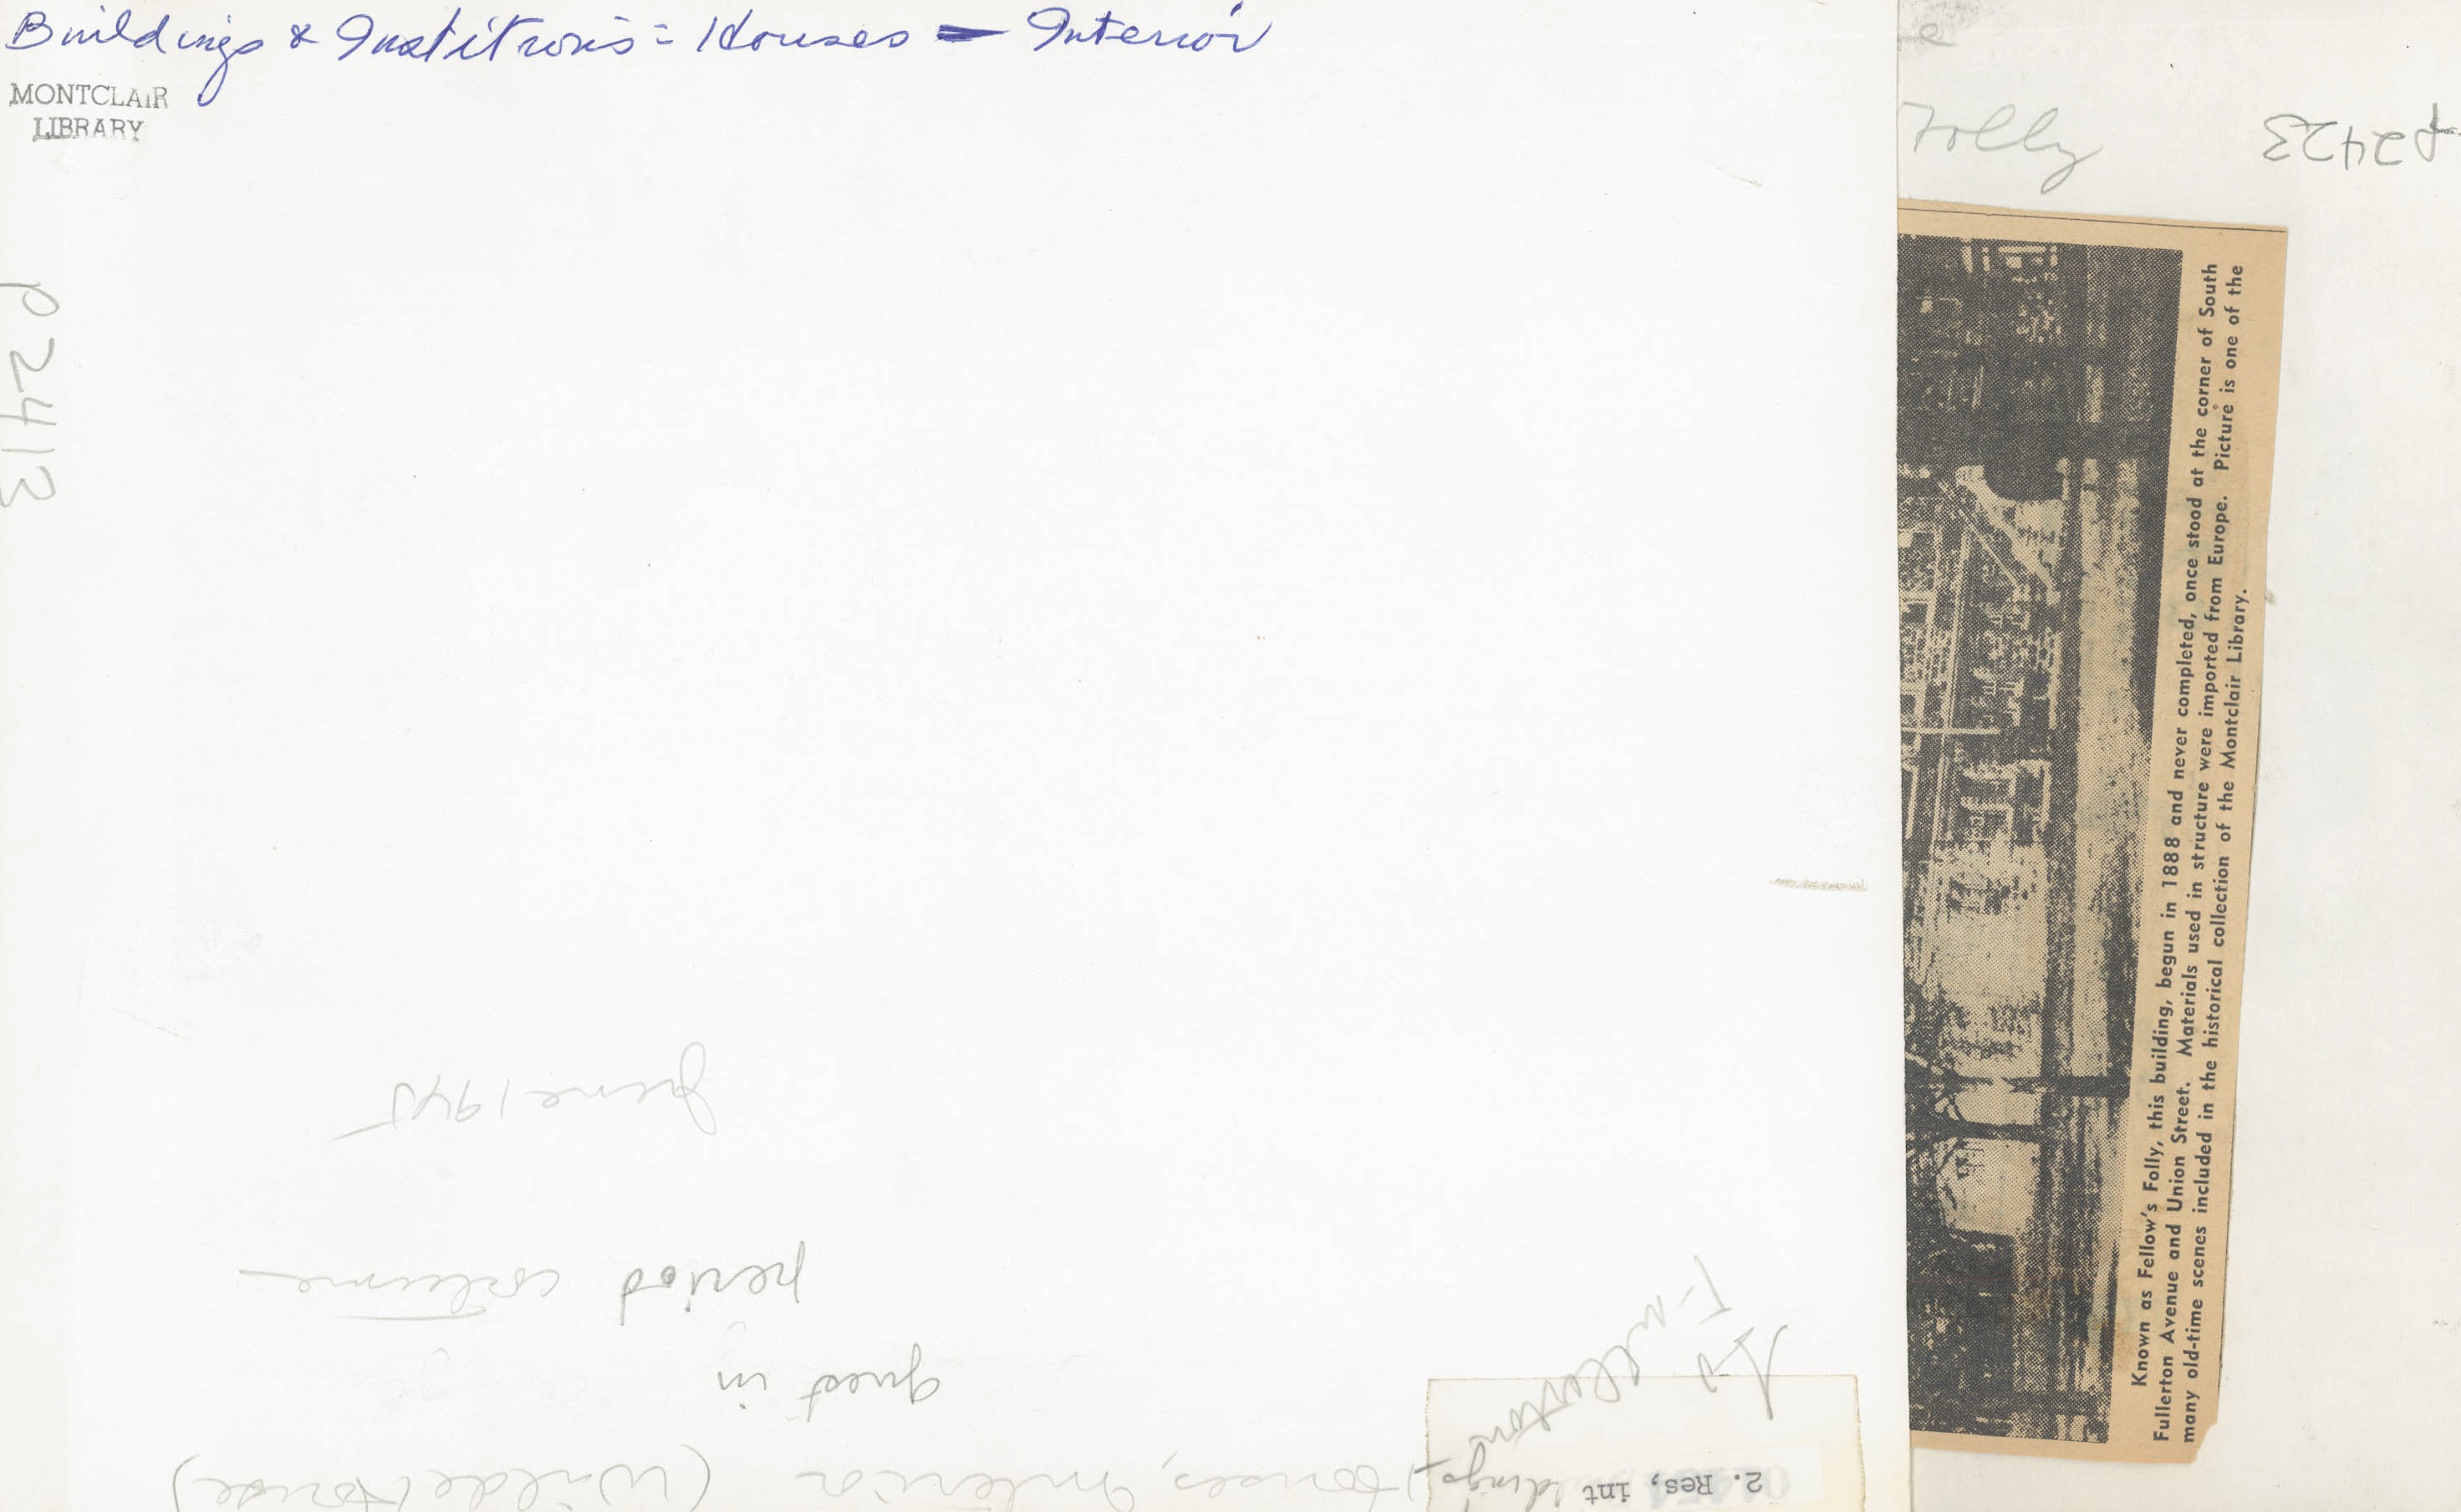 Buildings & Institions: Houses — Interior
MONTCLAIR
LIBRARY
P2413
June 1945
period costume
guest in
Houses, Interior (Wilde House)
So Fullerton
2. Res, int
Folly
P2423
Known as Fellow's Folly, this building, begun in 1888 and never completed, once stood at the corner of South
Fullerton Avenue and Union Street. Materials used in structure were imported from Europe. Picture is one of the
many old-time scenes included in the historical collection of the Montclair Library.